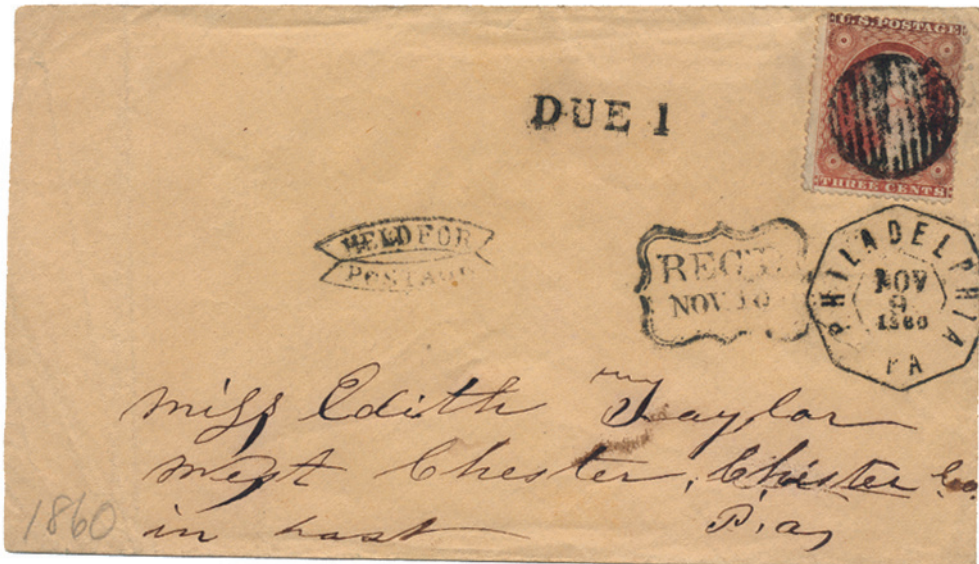 U.S. POSTAGE
THREE CENTS
DUE 1
HELD FOR
POSTAGE
REC'D.
NOV. 10
PHILADELPHIA
NOV
9
1860
PA
Miss Edith Taylor
West Chester, Chester Co
in hast Pa,
1860